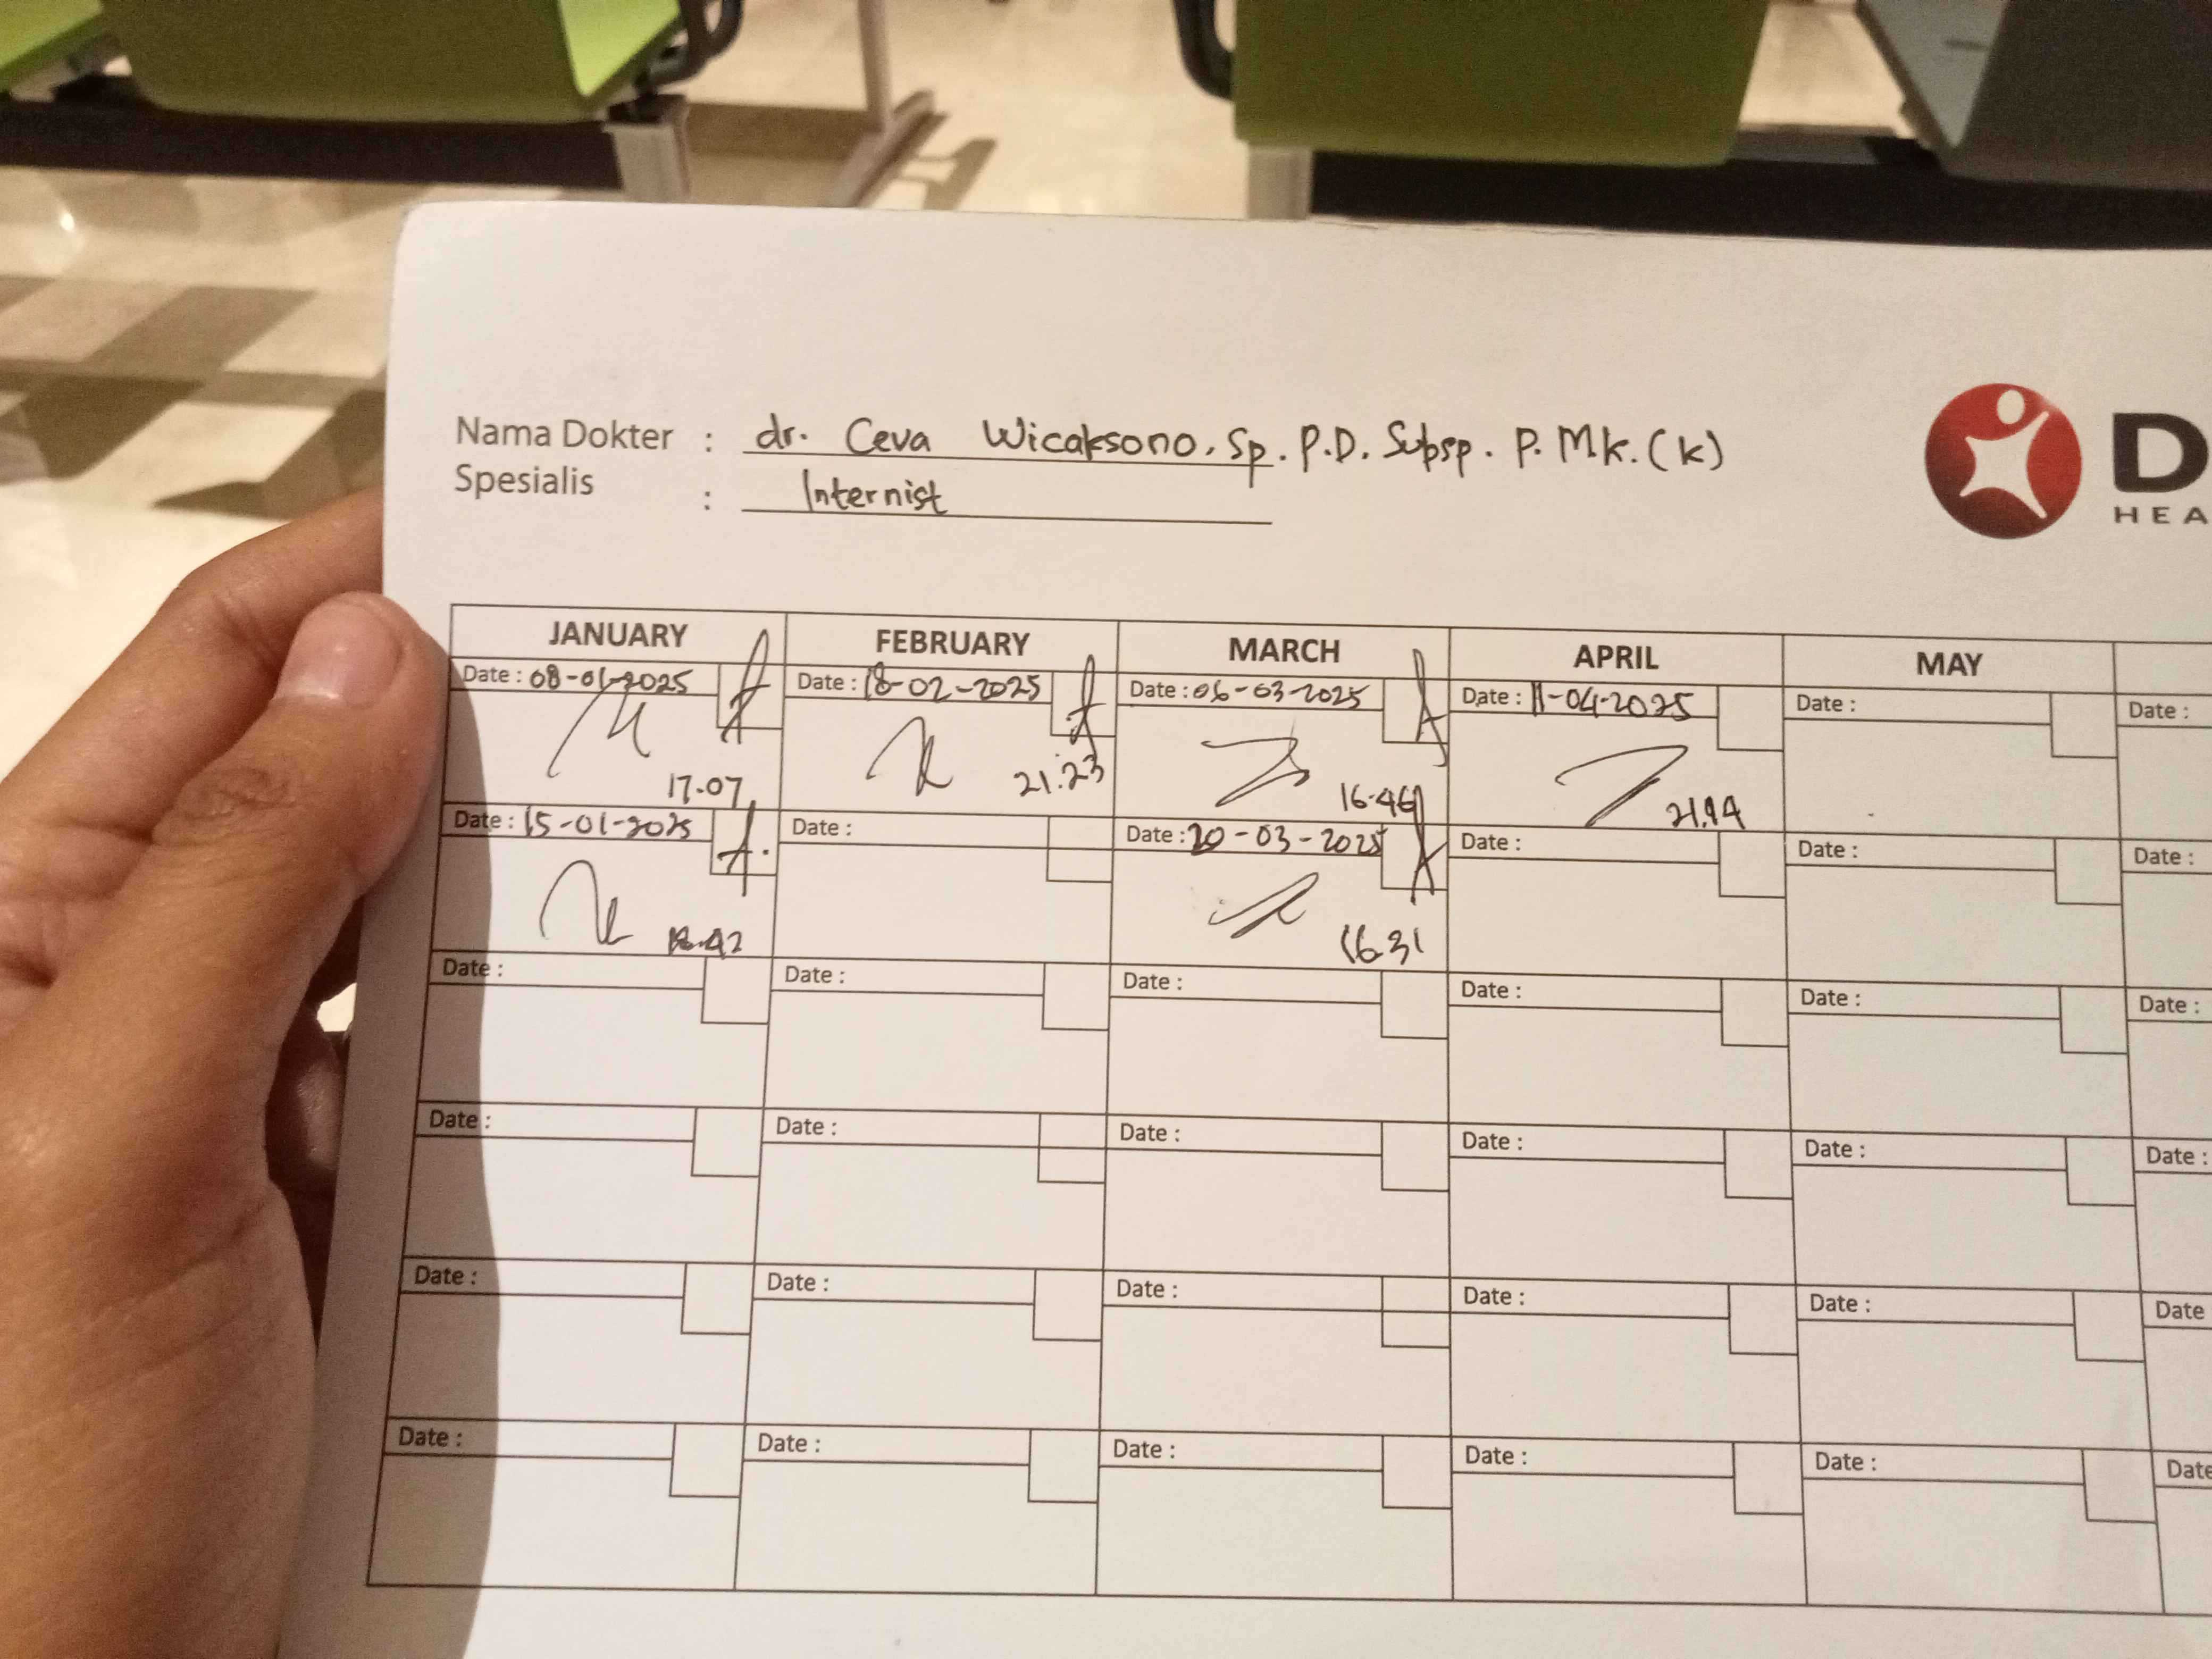 Nama Dokter : dr. Ceva Wicaksono, Sp. P.D. Subsp. P. Mk. (K)
Spesialis : Internist
D
HEA
JANUARY FEBRUARY MARCH APRIL MAY
Date : 08-01-2025 Date : 18-02-2025 Date : 06-03-2025 Date : 11-04-2025 Date : Date :
17.07 21.23 16.46
Date : 15-01-2025 Date : Date : 20-03-2025 Date : Date : Date :
16.31
Date : Date : Date : Date : Date : Date :
Date : Date : Date : Date : Date : Date :
Date : Date : Date : Date : Date : Date
Date : Date : Date : Date : Date : Date